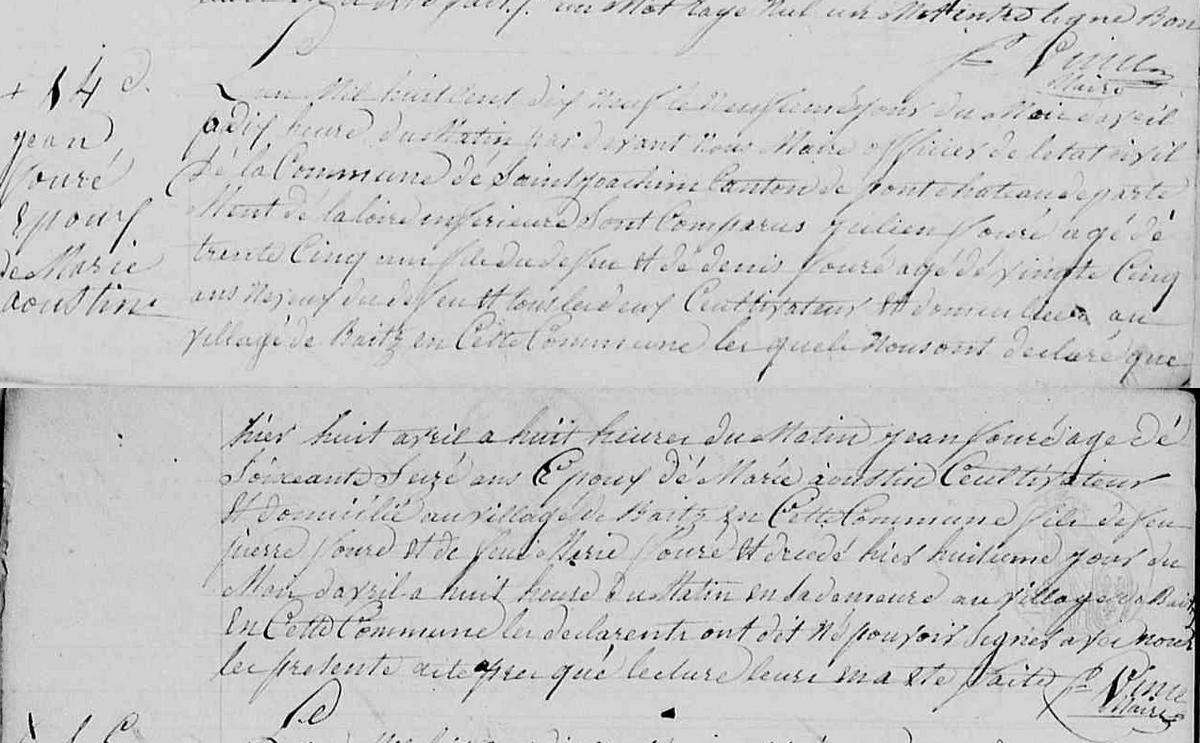 un mot rayé nul un mot interligne Bon
Vince
Maire
+ 14 d.
jean
fouré
Epoux
de Marie
aoustin
Lan Mil huit Cent dix neuf le Neufieme jour du Mois d'avril
a dix heure du Matin par devant Nous Maire officier de letat civil
Dé la Commune dé Saint joachim Canton de pontchateau departe
Ment de la loire inferieure Sont Comparus julien fouré agé dé
trente Cinq ans fils du defeu et dé denis fouré agé dé vingte Cinq
ans Neveux du defeu et tous les deux Ceultivateur et domicilié au
villagé de Baitz en Cette Commune les quels Nous ont declaré que
hier huit avril a huit heures du Matin jean fouré age dé
Soixeante Seizé ans Epoux dé Marie aoustin Ceultivateur
et domicilié au villagé de Baitz en Cette Commune fils de feu
pierre fouré et de feue Marie fouré et decedé hier huitieme jour du
Mois d'avril a huit heure du Matin en Sa demeure au village de Baitz
En Cette Commune les declarents ont dit Né pouvoir Signer avec nous
les presente acte apres qué lecture leurs en a été faite
Vince
Maire